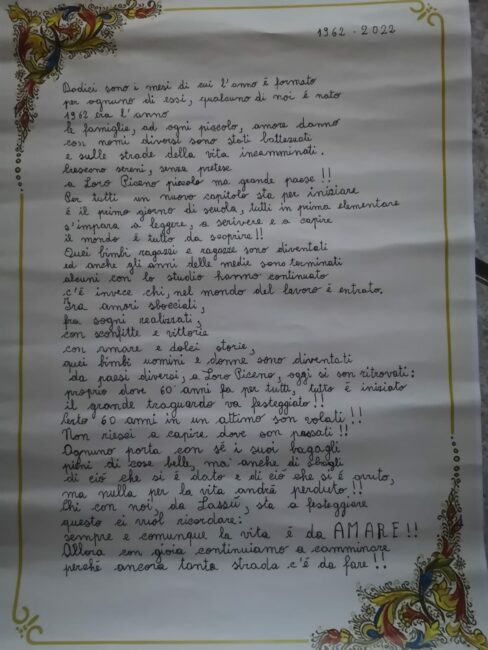 1962 - 2022
Dodici sono i mesi di cui l'anno é formato
per ognuno di essi, qualcuno di noi é nato
1962 era l'anno
le famiglie, ad ogni piccolo, amore danno
con nomi diversi sono stati battezzati
e sulle strade della vita incamminati.
Crescono sereni, senza pretese
a Loro Piceno piccolo ma grande paese !!
Per tutti un nuovo capitolo sta per iniziare
é il primo giorno di scuola, tutti in prima elementare
s'impara a leggere, a scrivere e a capire
il mondo é tutto da scoprire!!
Quei bimbi ragazzi e ragazze sono diventati
ed anche gli anni delle medie sono terminati
alcuni con lo studio hanno continuato
c'é invece chi, nel mondo del lavoro é entrato.
Fra amori sbocciati,
fra sogni realizzati,
con sconfitte e vittorie
con amare e dolci storie,
quei bimbi uomini e donne sono diventati
da paesi diversi, a Loro Piceno, oggi si son ritrovati:
proprio dove 60 anni fa per tutti, tutto é iniziato
il grande traguardo va festeggiato !!
Certo 60 anni in un attimo son volati !!
Non riesci a capire dove son passati !!
Ognuno porta con sé i suoi bagagli
pieni di cose belle, ma anche di sbagli
di ció che si é dato e di ció che si é avuto,
ma nulla per la vita andrá perduto !!
Chi con noi, da Lassú, sta a festeggiare
questo ci vuol ricordare:
sempre e comunque la vita é da AMARE!!
Allora con gioia continuiamo a camminare
perché ancora tanta strada c'é da fare !!